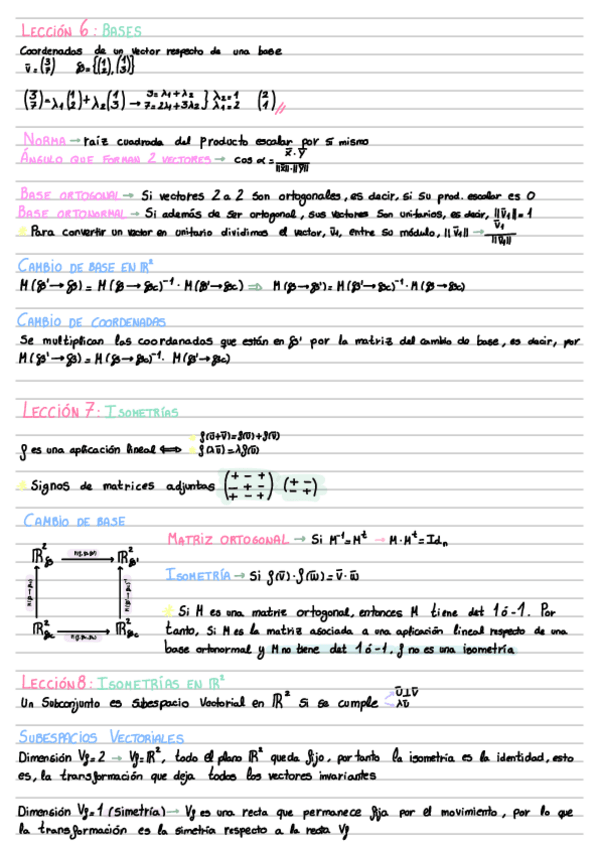 LECCIÓN 6: BASES
Coordenadas de un vector respecto de una base
v̄ = (3 7) B = {(1 2), (1 3)}
(3 7) = λ₁ (1 2) + λ₂ (1 3) → 3 = λ₁ + λ₂ 7 = 2λ₁ + 3λ₂ } λ₂ = 1 λ₁ = 2 (2 1) //
NORMA → raíz cuadrada del producto escalar por sí mismo
ÁNGULO QUE FORMAN 2 VECTORES → cos α = x̄ · ȳ / ||x̄|| · ||ȳ||
BASE ORTOGONAL → Si vectores 2 a 2 son ortogonales, es decir, si su prod. escalar es 0
BASE ORTONORMAL → Si además de ser ortogonal, sus vectores son unitarios, es decir, ||v̄₁|| = 1
Para convertir un vector en unitario dividimos el vector, v̄₁, entre su módulo, ||v̄₁|| → v̄₁ / ||v̄₁||
CAMBIO DE BASE EN ℝ²
M(B'→B) = M(B→Bc)⁻¹ · M(B'→Bc) ⇒ M(B→B') = M(B'→Bc)⁻¹ · M(B→Bc)
CAMBIO DE COORDENADAS
Se multiplican las coordenadas que están en B' por la matriz del cambio de base, es decir, por
M(B'→B) = M(B→Bc)⁻¹ · M(B'→Bc)
LECCIÓN 7: ISOMETRÍAS
f es una aplicación lineal ⟺ f(ū+v̄) = f(ū) + f(v̄)
f(λū) = λf(ū)
Signos de matrices adjuntas (+ - + / - + - / + - +) (+ - / - +)
CAMBIO DE BASE
MATRIZ ORTOGONAL → Si M⁻¹ = Mᵗ → M · Mᵗ = Idₙ
ℝ²B → ℝ²B'
ISOMETRÍA → Si f(v̄) · f(w̄) = v̄ · w̄
Si M es una matriz ortogonal, entonces M tiene det 1 ó -1. Por
ℝ²Bc → ℝ²Bc
tanto, si M es la matriz asociada a una aplicación lineal respecto de una
base ortonormal y M no tiene det 1 ó -1, f no es una isometría
LECCIÓN 8: ISOMETRÍAS EN ℝ²
Un subconjunto es subespacio vectorial en ℝ² si se cumple ū⊥v̄
λū
SUBESPACIOS VECTORIALES
Dimensión Vf = 2 → Vf = ℝ², todo el plano ℝ² queda fijo, por tanto la isometría es la identidad, esto
es, la transformación que deja todos los vectores invariantes
Dimensión Vf = 1 (Simetría) → Vf es una recta que permanece fija por el movimiento, por lo que
la transformación es la simetría respecto a la recta Vf